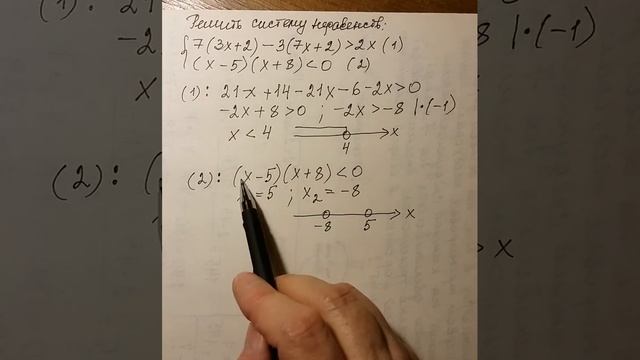 Решить систему неравенств:
{7(3x+2)-3(7x+2)>2x (1)
(x-5)(x+8)<0 (2)
(1): 21x+14-21x-6-2x>0
-2x+8>0 ; -2x>-8 |·(-1)
x<4
x
4
(2): (x-5)(x+8)<0
=5 ; x₂=-8
x
-8 5